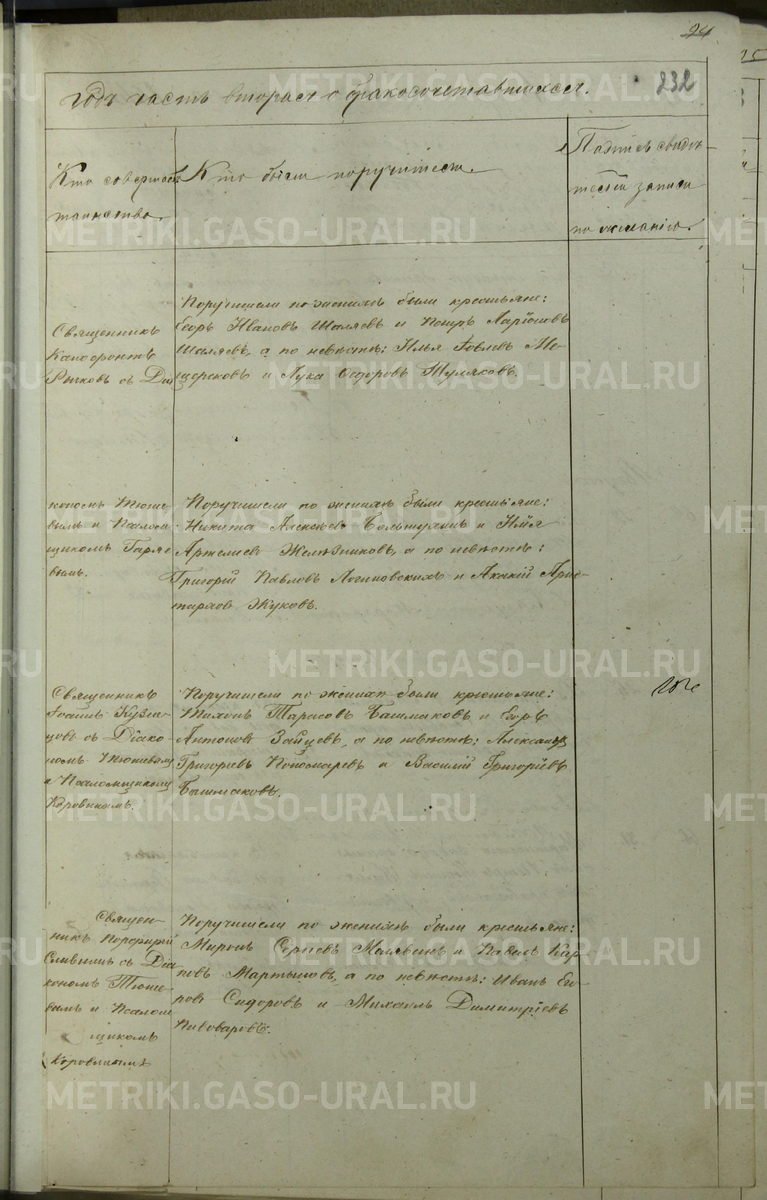 24
232
годъ часть вторая о бракосочетавшихся.
Кто совершалъ
таинство.
Кто были поручители.
Подпись свидѣ-
телей записи
по желанію.
Священникъ
Ксенофонтъ
Рычковъ съ Діа
Поручители по женихѣ были крестьяне:
Егоръ Ивановъ Шаляевъ и Петръ Ларіоновъ
Шаляевъ, а по невѣстѣ: Илья Іовлевъ Ме-
щеряковъ и Лука Ѳедоровъ Туляковъ.
кономъ Тюше-
вымъ и Псалом
щикомъ Гаряе
вымъ.
Поручители по женихѣ были крестьяне:
Никита Алексѣевъ и Илья
Желѣзниковъ, а по невѣстѣ:
Григорій Павловъ Логиновскихъ и Акакій Арис
тарховъ Жуковъ.
Священникъ
Іоаннъ Кузне-
цовъ съ Діако-
номъ Тюшевымъ
и Псаломщикомъ
Коровинымъ.
Поручители по женихѣ были крестьяне:
Тихонъ Тарасовъ Башмаковъ и Егоръ
Антоновъ Зайцевъ, а по невѣстѣ: Александръ
Григорьевъ Пономаревъ и Василій Григорьевъ
Башмаковъ.
Священ-
никъ Порфирій
Словцовъ съ Діа
кономъ Тюше-
вымъ и Псалом
щикомъ
Коровинымъ
Поручители по женихѣ были крестьяне:
Миронъ Сергѣевъ и Павелъ Кар
повъ Мартышовъ, а по невѣстѣ: Иванъ Его
ровъ Сидоровъ и Михаилъ Димитріевъ
Пивоваровъ.
METRIKI.GASO-URAL.RU